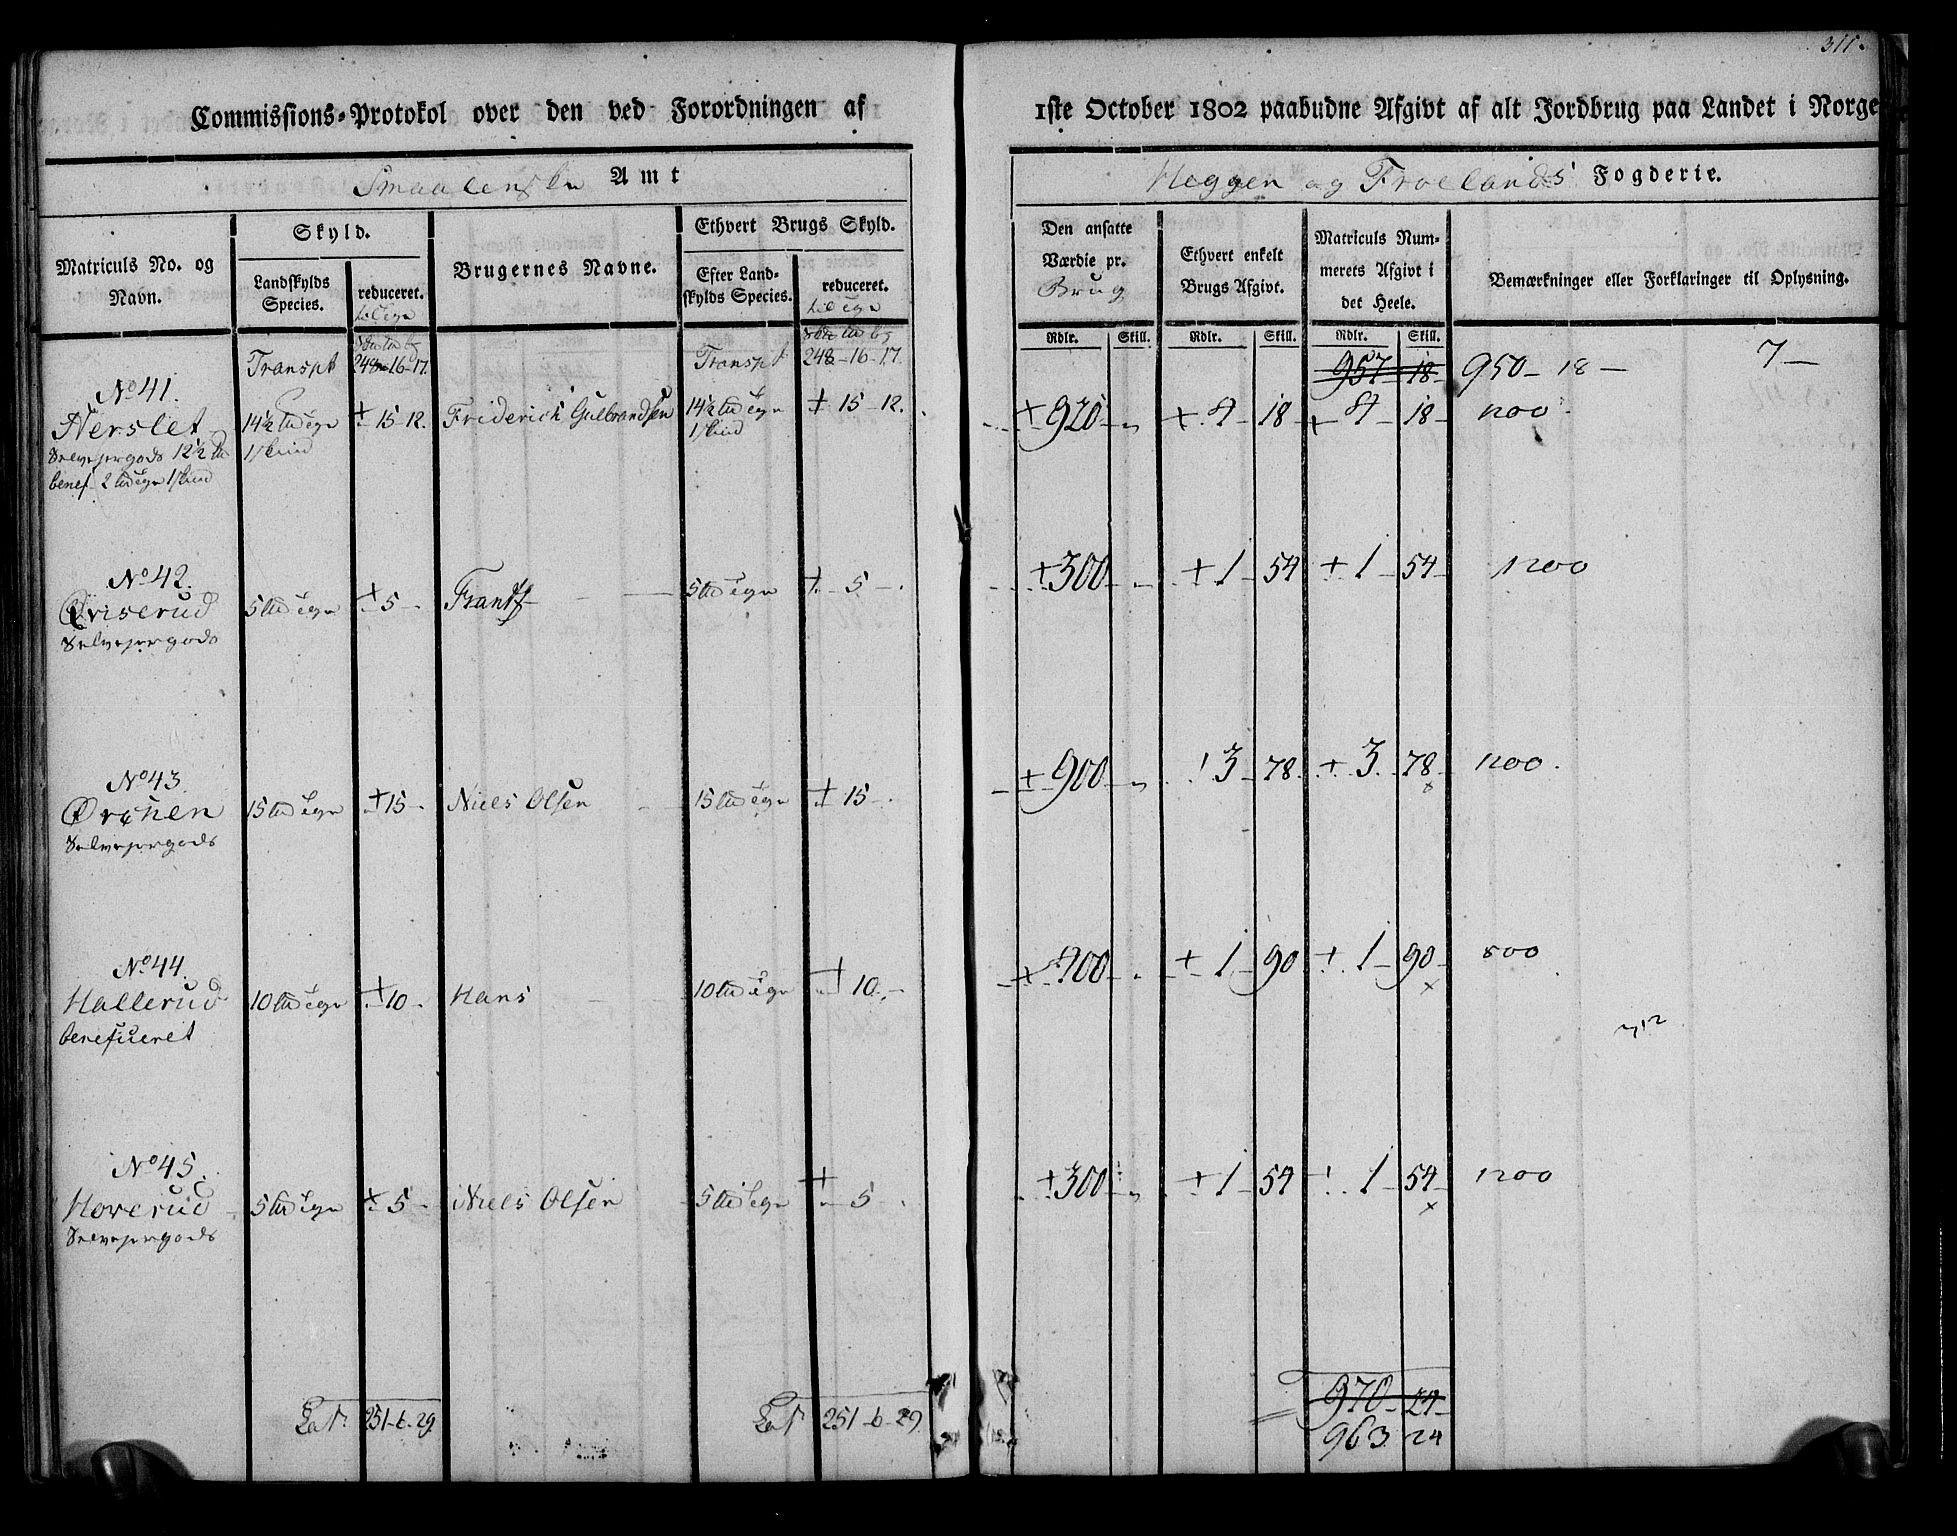 311.
Commissions-Protokol over den ved Forordningen af 1ste October 1802 paabudne Afgivt af alt Jordbrug paa Landet i Norge
Smaalenske Amt
Heggen og Froelands Fogderie.
Matriculs No. og Navn.
Skyld.
Landskylds Species.
reduceret.
Brugernes Navne.
Ethvert Brugs Skyld.
Efter Landskylds Species.
reduceret.
Den ansatte Værdie pr. Brug
Ethvert enkelt Brugs Afgivt.
Matriculs Nummerets Afgivt i det Heele.
Bemærkninger eller Forklaringer til Oplysning.
Rdlr. Skill. Rdlr. Skill. Rdlr. Skill.
Transpt 248-16-17. Transpt 248-16-17. 957 18 950-18- 7-
No 41.
Nerslet 14½ 15-12. Friderich Gulbrandsen 14½ 15-12. 920 4 18 4 18 1200
12½
benef 2
No 42.
Øriserud 5 5 Frantz 5 5 300 1 54 1 54 1200
Selvejergods
No 43.
15 15 Niels Olsen 15 15 900 3 78 3 78 1200
Selvejergods
No 44.
Hallerud 10 10 Hans 10 10 400 1 90 1 90 800
beneficeret
No 45.
Hoverud 5 5 Niels Olsen 5 5 300 1 54 1 54 1200
Selvejergods
Lat. 251-6-29. Lat. 251-6-29 970 24
963 24